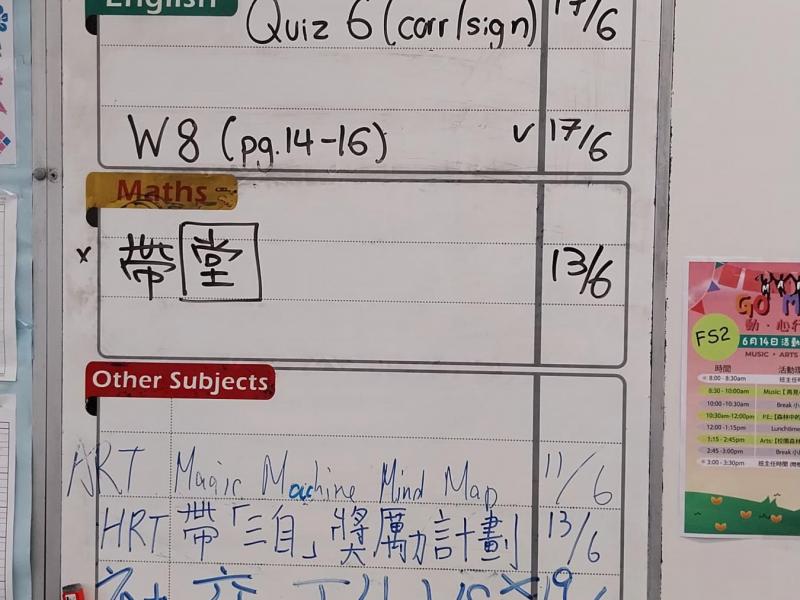 English
Quiz 6 (corr/sign) 17/6
W8 (pg.14-16) v 17/6
Maths
x 帶堂 13/6
Other Subjects
ART Magic Machine Mind Map 11/6
HRT 帶「三自」獎勵計劃 13/6
19
GO M
動·心行
FS2
6月14日活動
MUSIC • ARTS
時間 活動
8:00 - 8:30am 班主任
8:30 - 10:00am Music:
10:00 -10:30am Break 小
10:30am-12:00pm P.E.:
12:00 -1:15pm Lunchtime
1:15 - 2:45pm Arts:
2:45 -3:00pm Break 小
3:00 - 3:30pm 班主任時間